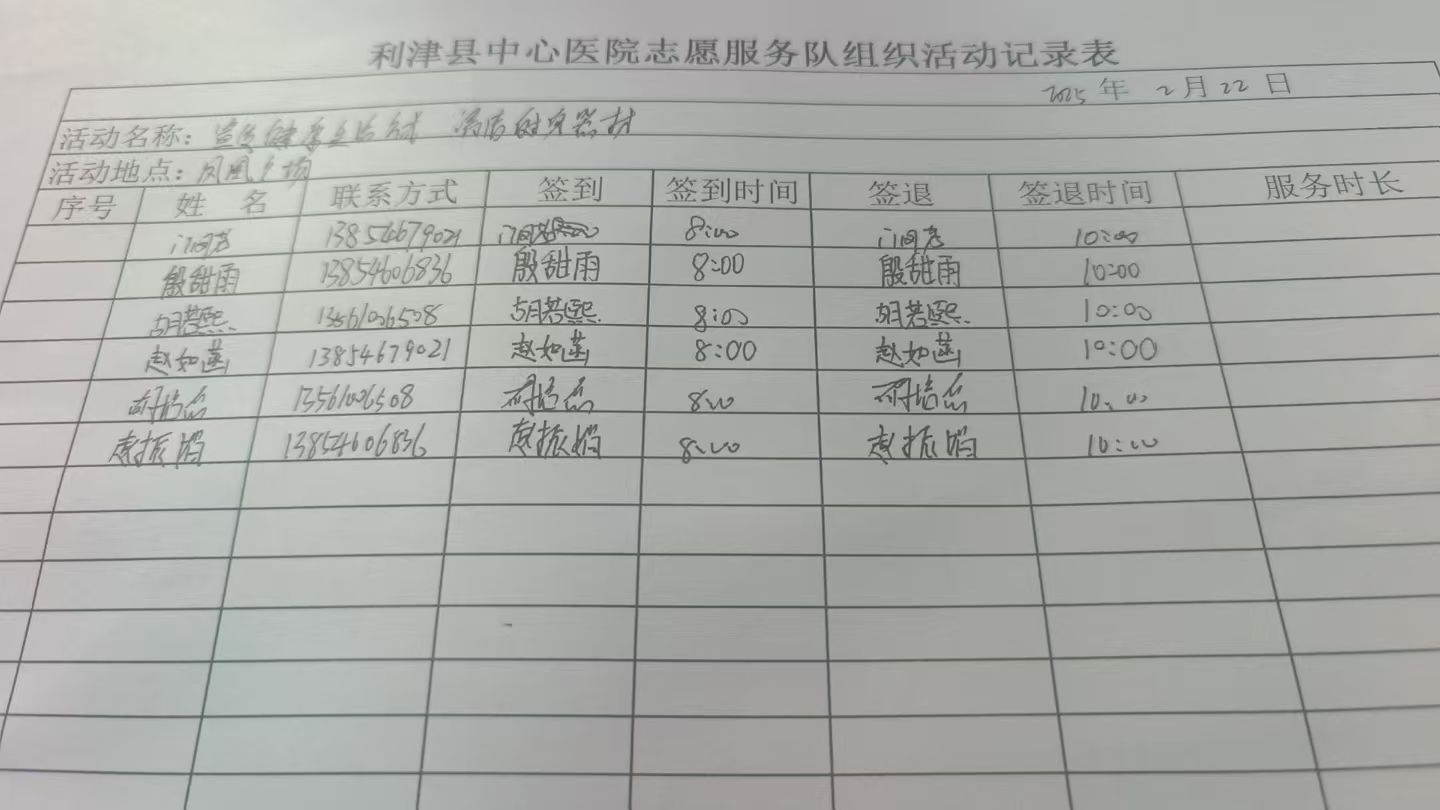 利津县中心医院志愿服务队组织活动记录表
2025 年 2 月 22 日
活动名称：宣传健康生活方式 清洁健身器材
活动地点：凤凰广场
序号 姓 名 联系方式 签到 签到时间 签退 签退时间 服务时长
13854679021 8:00 10:00
殷甜雨 13854606836 殷甜雨 8:00 殷甜雨 10:00
胡若熙 13561006508 胡若熙 8:00 胡若熙 10:00
赵如菡 13854679021 赵如菡 8:00 赵如菡 10:00
13561006508 8:00 10:00
赵振 13854606836 赵振 8:00 赵振 10:00